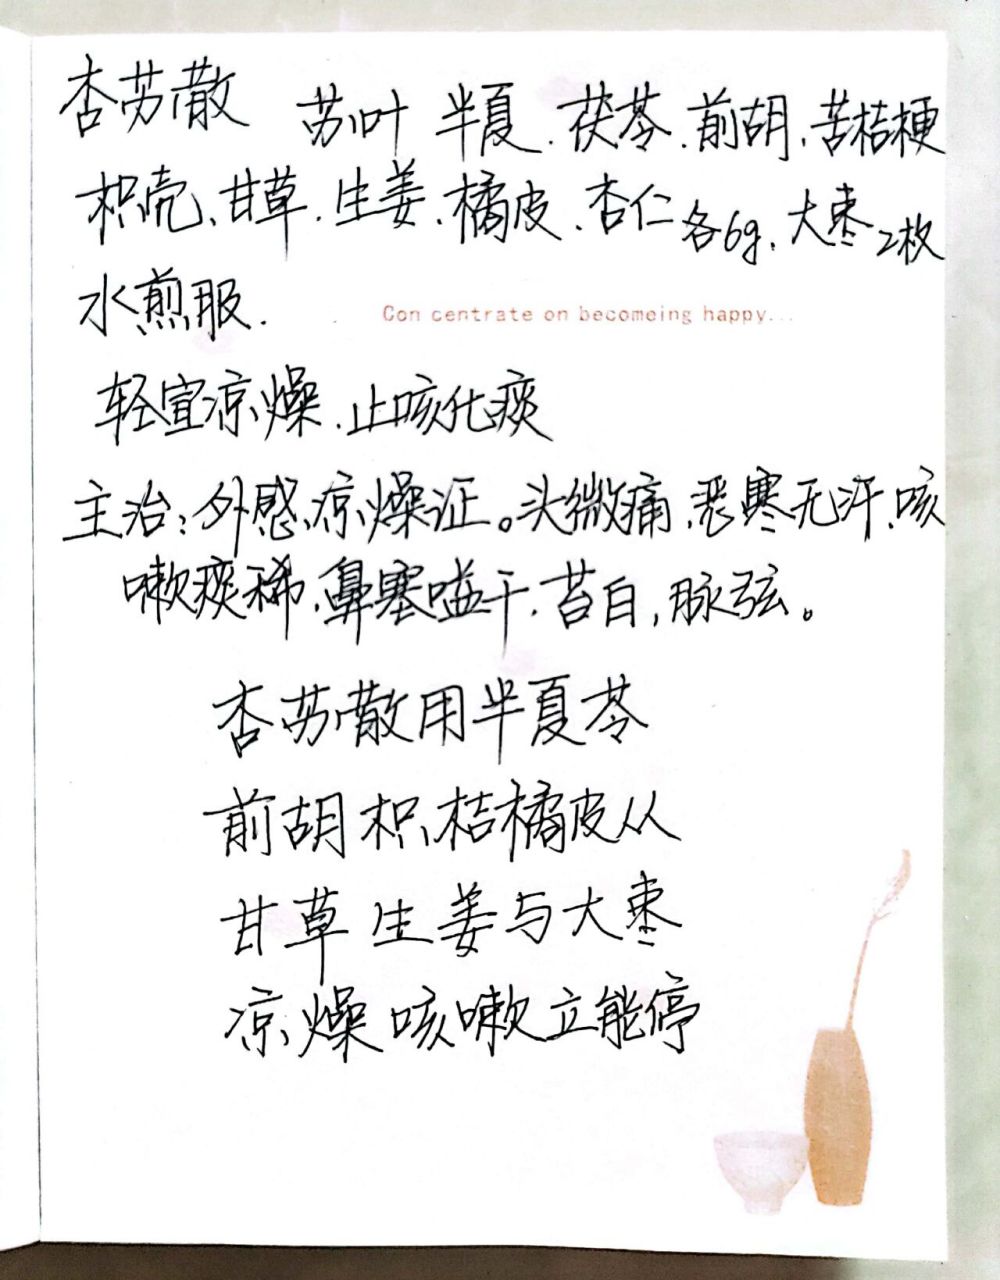 杏苏散 苏叶 半夏.茯苓.前胡.苦桔梗
枳壳.甘草.生姜.橘皮.杏仁各6g.大枣2枚
水煎服.
Con centrate on becomeing happy...
轻宣凉燥.止咳化痰
主治:外感凉燥证。头微痛.恶寒无汗.咳
嗽痰稀.鼻塞嗌干.苔白,脉弦。
杏苏散用半夏苓
前胡枳桔橘皮从
甘草生姜与大枣
凉燥咳嗽立能停